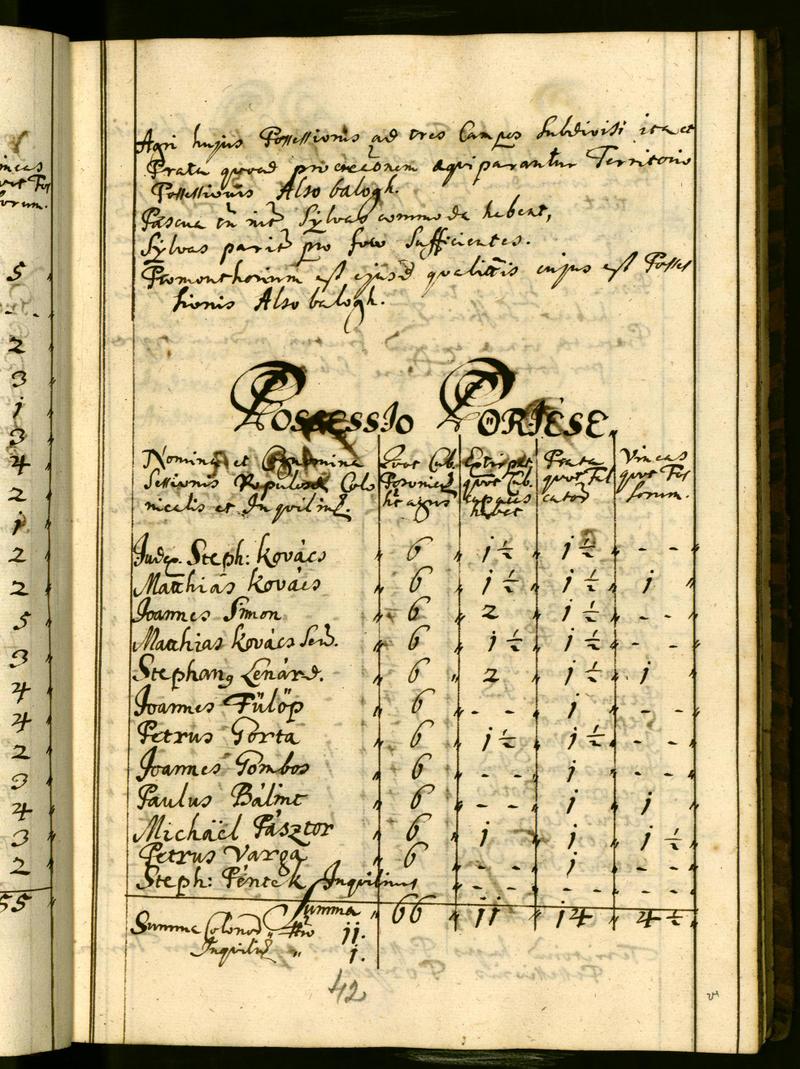 5
2
3
1
3
4
2
1
2
2
5
3
4
4
2
3
4
3
2
55
Agri hujus Possessionis ad tres Campos Subdivisi ita et
Prata quoad procreõnem æquiparantur Territorio
Possessionis Also balogh.
Pascua commoda habent,
Sylvas parit̃ pro foco Sufficientes.
Promonthorium est ejusd̃ qualitatis cujus est Posses
sionis Also balogh.
Possessio Poriese.
Nomina et Cognomina | Quot Cub. | Extirpati | Prata | Vineas
Sessionis Populosæ Colo | Posonien̄ | quot Cub. | quot Fal | quot Fos
nicalis et Inquilin̄. | ht agros | capaces | catorũ | sorum.
habet
Judex. Steph: Kovács " 6 " 1 ½ " 1 ½ " - - "
Matthias Kovács " 6 " 1 ½ " 1 ½ " 1 "
Joannes Simon " 6 " 2 " 1 ½ " - - "
Matthias Kovács Sen̄. " 6 " 1 ½ " 1 ½ " - - "
Stephanꝰ Lenárd. " 6 " 2 " 1 ½ " 1 "
Joannes Fülöp " 6 " - - " 1 " - - "
Petrus Torta " 6 " 1 ½ " 1 ½ " - - "
Joannes Gombos " 6 " - - " 1 " - - "
Paulus Bálint " 6 " - - " 1 " 1 "
Michäel Pásztor " 6 " 1 " 1 " 1 ½ "
Petrus Varga " 6 " - - " 1 " - - "
Steph: Péntek Inquilinus " - - " - - " - - "
Summa " 66 " 11 " 14 " 4 ½ "
Summa Colonoꝝ 11.
Inquilin̄ " 1.
42